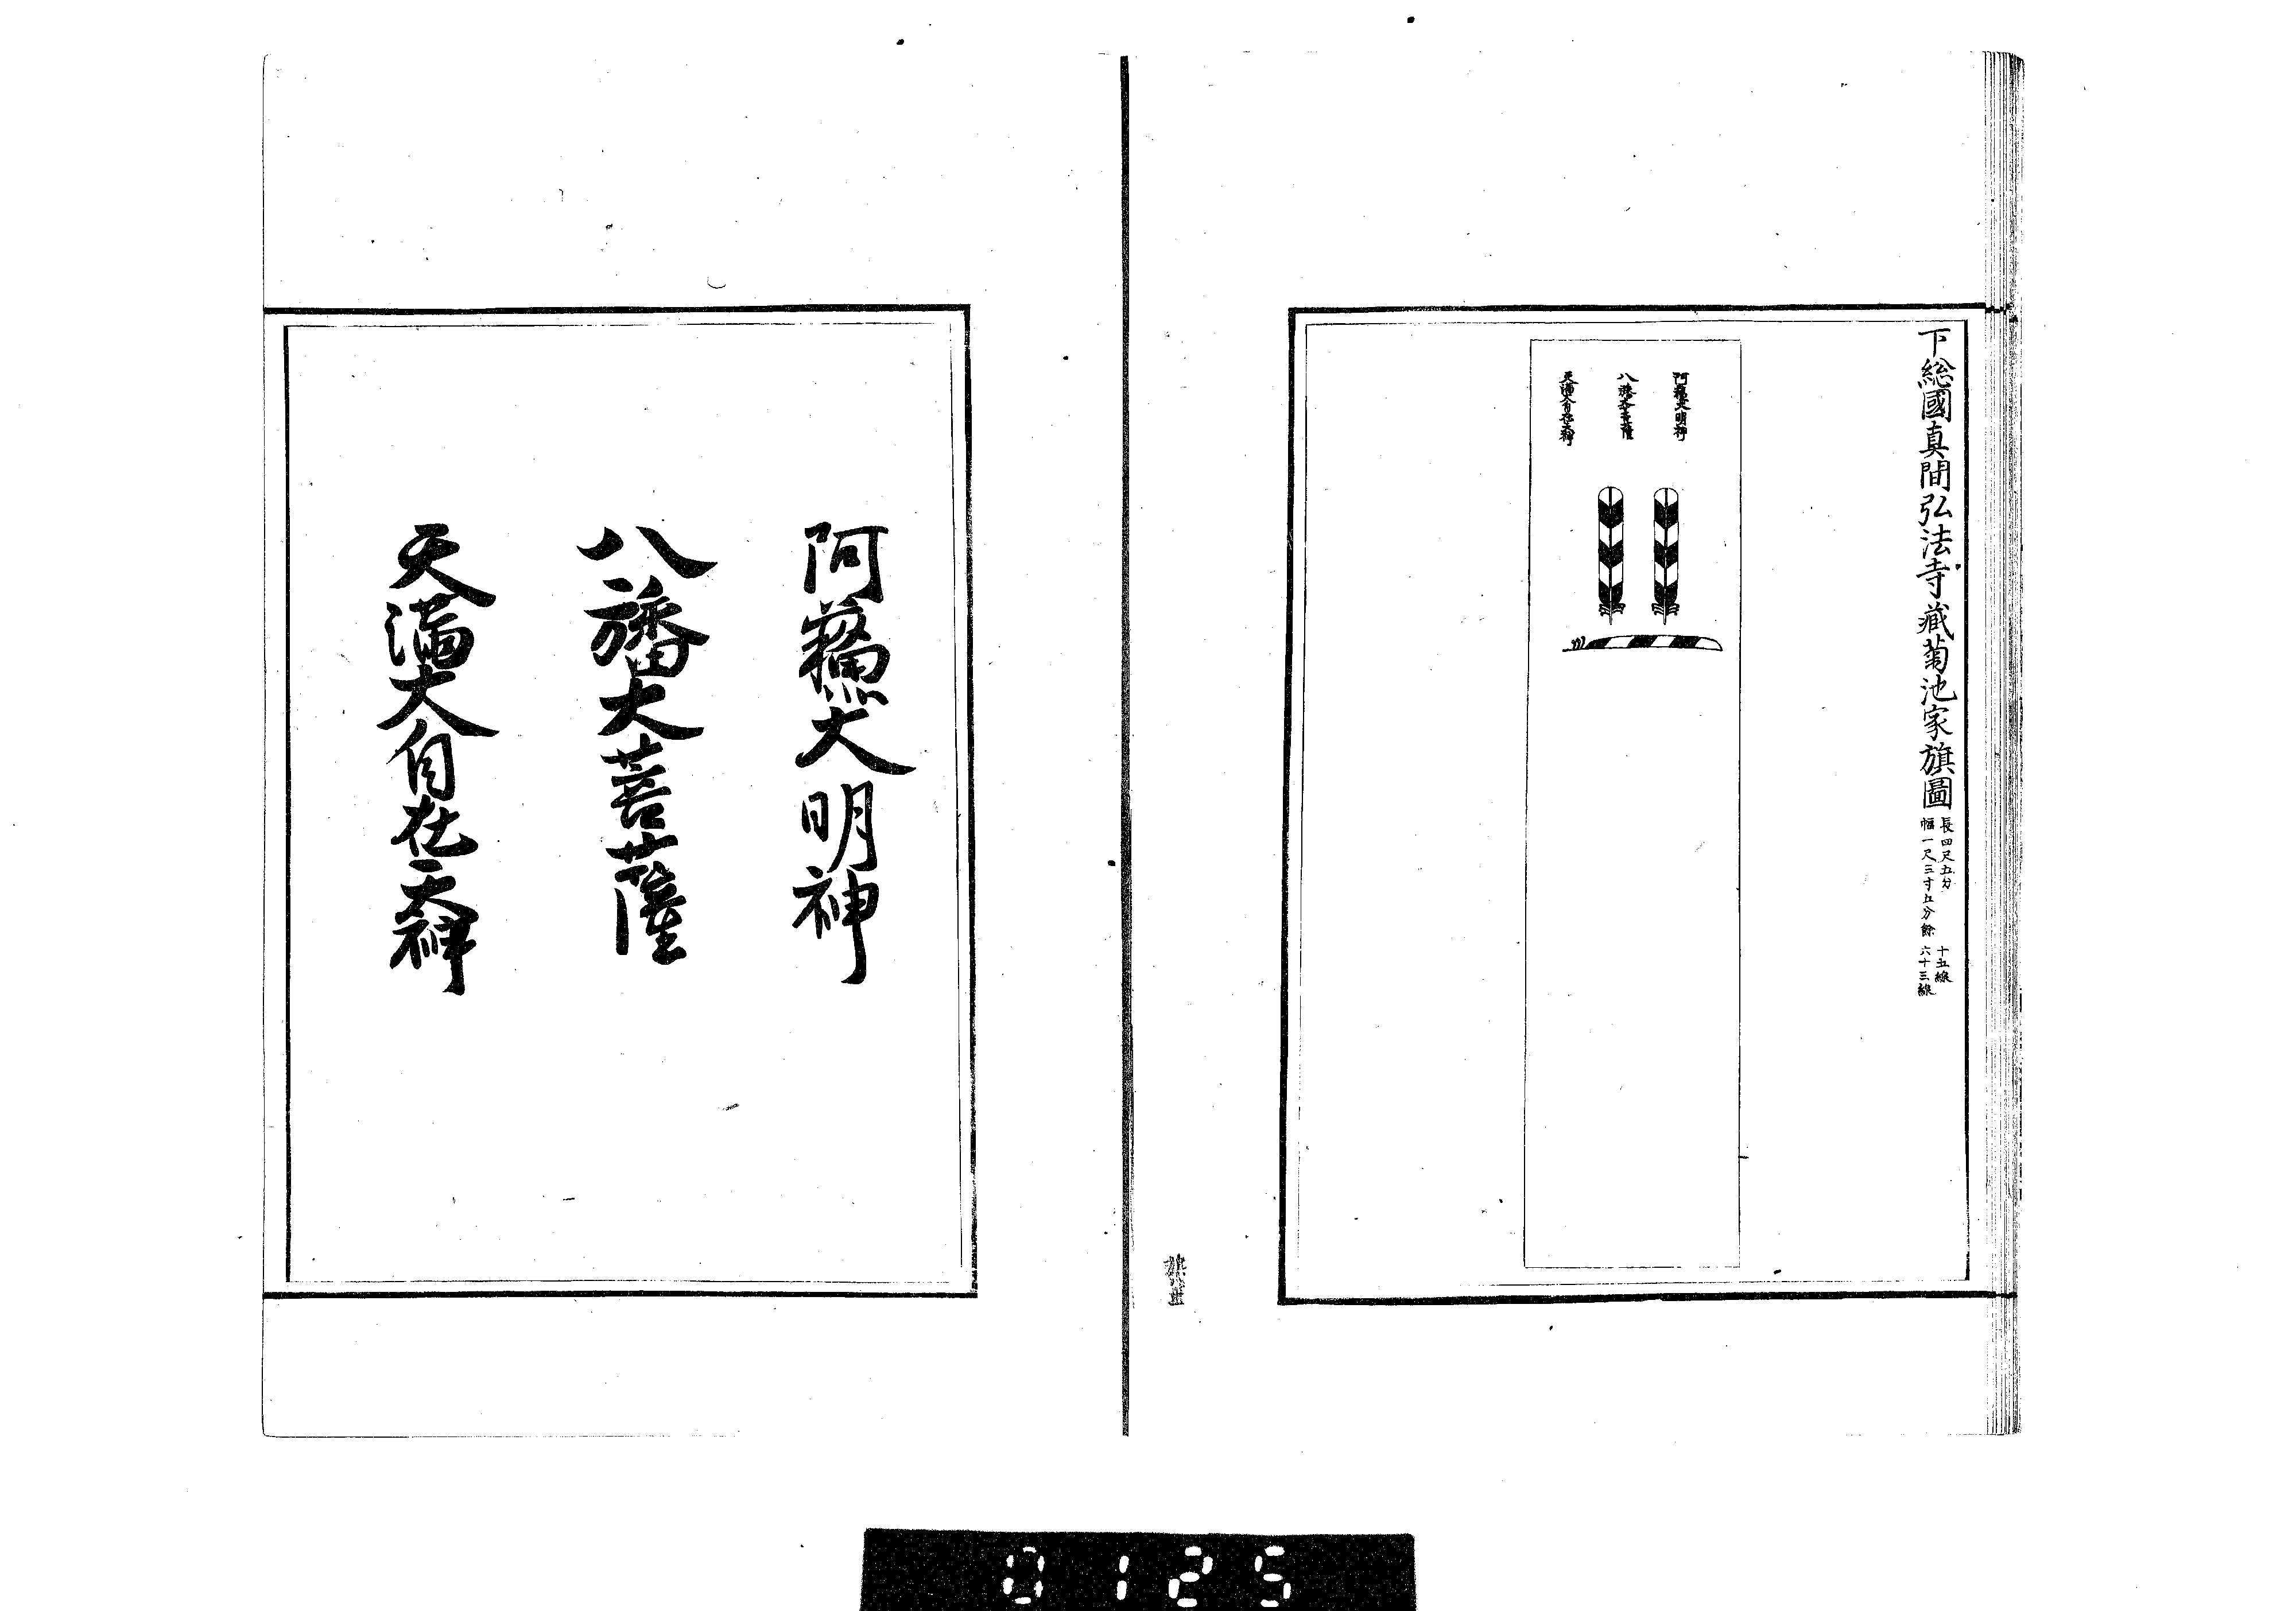 下総國真間弘法寺藏菊池家旗圖
長四尺五分
幅一尺三寸五分餘
十五線
六十三線
阿蘓大明神
八旛大菩薩
天満大自在天神
阿蘓大明神
八旛大菩薩
天満大自在天神
0125